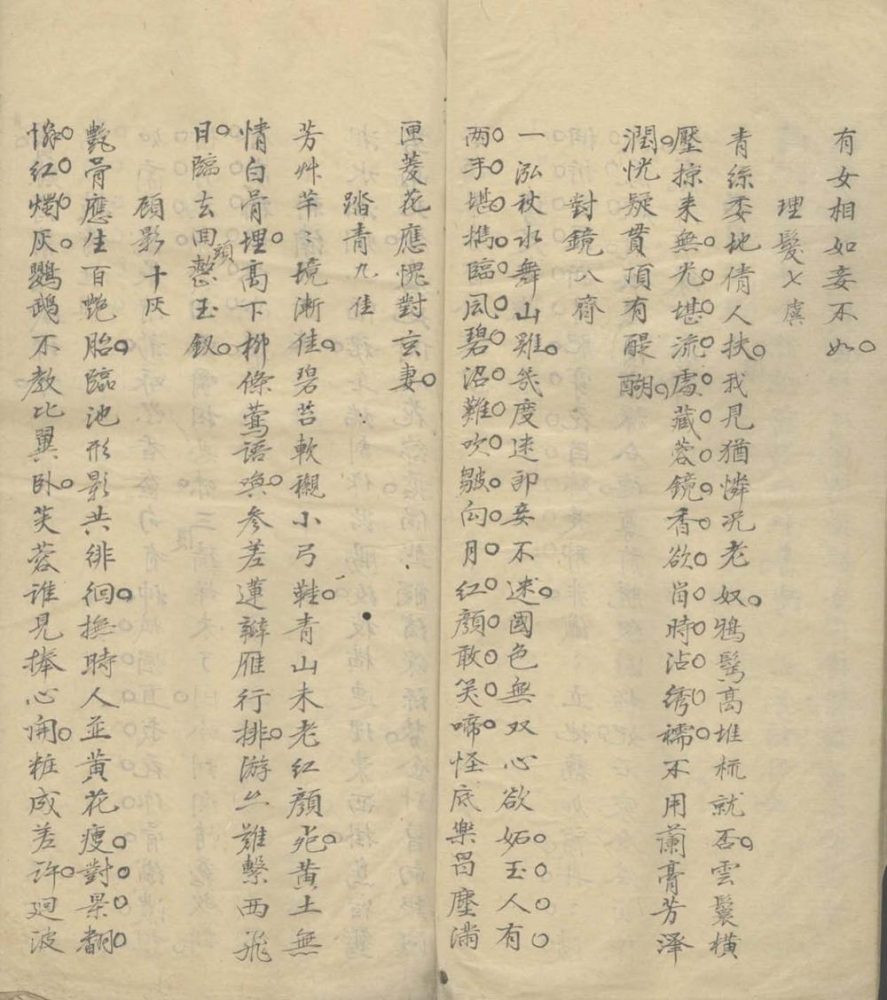 有女相如妾不如
理髮七虞
青絲委地倩人扶我見猶憐况老奴鴉髻高堆梳就否雲鬟橫
壓掠来無光堪流處藏蓉鏡香欲留時沾绣襦不用蘭膏芳泽
潤恍疑貫頂有醍醐
對鏡八齊
一泓秋水舞山雞幾度迷郎妾不迷國色無双心欲妬玉人有
两手堪擕臨風碧沼難吹皺向月紅顔敢笑啼怪底樂昌塵滿
匣菱花應愧對玄妻
踏青九佳
芳艸芊々境漸佳碧苔軟襯小弓鞋青山未老紅顔死黄土無
情白骨埋髙下柳條鶯語喚参差蓮瓣雁行排游丝難繫西飛
日臨去回頭整玉釵
顧影十灰
艶骨應生百艶胎臨池形影共徘徊撫時人並黄花瘦對景翻
惱紅燭灰鸚鵡不教比翼卧芙蓉谁見捧心開粧成差许廻波